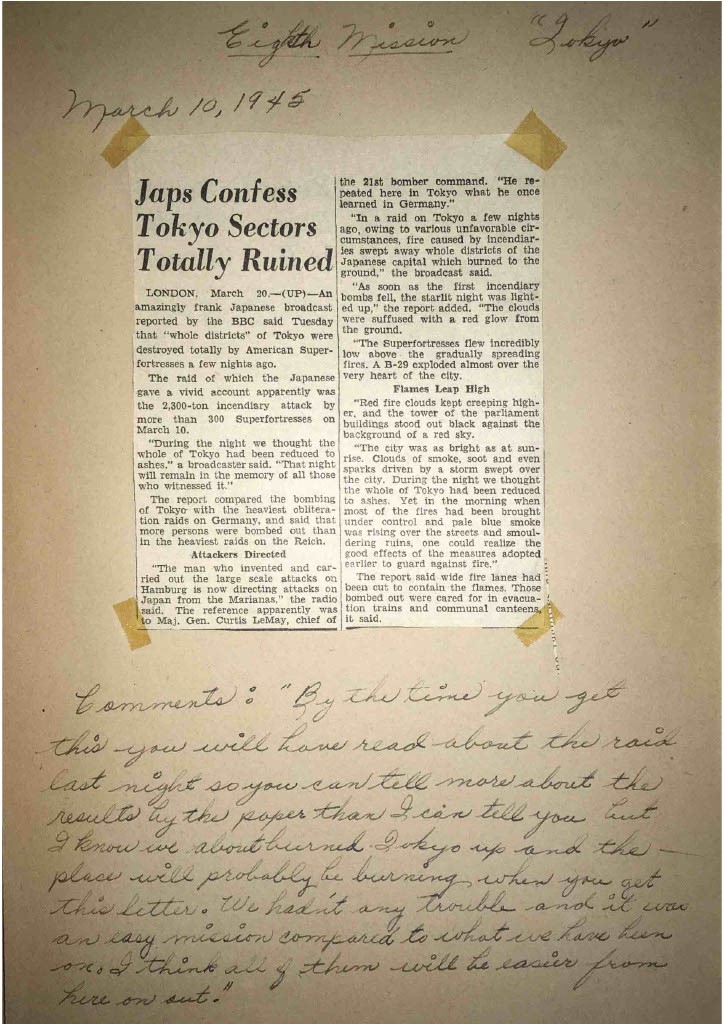 Eighth Mission "Tokyo"
March 10, 1945
Japs Confess
Tokyo Sectors
Totally Ruined
LONDON, March 20.—(UP)—An
amazingly frank Japanese broadcast
reported by the BBC said Tuesday
that "whole districts" of Tokyo were
destroyed totally by American Super-
fortresses a few nights ago.
The raid of which the Japanese
gave a vivid account apparently was
the 2,300-ton incendiary attack by
more than 300 Superfortresses on
March 10.
"During the night we thought the
whole of Tokyo had been reduced to
ashes," a broadcaster said. "That night
will remain in the memory of all those
who witnessed it."
The report compared the bombing
of Tokyo with the heaviest oblitera-
tion raids on Germany, and said that
more persons were bombed out than
in the heaviest raids on the Reich.
Attackers Directed
"The man who invented and car-
ried out the large scale attacks on
Hamburg is now directing attacks on
Japan from the Marianas," the radio
said. The reference apparently was
to Maj. Gen. Curtis LeMay, chief of
the 21st bomber command. "He re-
peated here in Tokyo what he once
learned in Germany."
"In a raid on Tokyo a few nights
ago, owing to various unfavorable cir-
cumstances, fire caused by incendiar-
ies swept away whole districts of the
Japanese capital which burned to the
ground," the broadcast said.
"As soon as the first incendiary
bombs fell, the starlit night was light-
ed up," the report added. "The clouds
were suffused with a red glow from
the ground.
"The Superfortresses flew incredibly
low above the gradually spreading
fires. A B-29 exploded almost over the
very heart of the city.
Flames Leap High
"Red fire clouds kept creeping high-
er, and the tower of the parliament
buildings stood out black against the
background of a red sky.
"The city was as bright as at sun-
rise. Clouds of smoke, soot and even
sparks driven by a storm swept over
the city. During the night we thought
the whole of Tokyo had been reduced
to ashes. Yet in the morning when
most of the fires had been brought
under control and pale blue smoke
was rising over the streets and smoul-
dering ruins, one could realize the
good effects of the measures adopted
earlier to guard against fire."
The report said wide fire lanes had
been cut to contain the flames. Those
bombed out were cared for in evacua-
tion trains and communal canteens,
it said.
Comments: "By the time you get
this you will have read about the raid
last night so you can tell more about the
results by the paper than I can tell you but
I know we about burned Tokyo up and the —
place will probably be burning when you get
this letter. We hadn't any trouble and it was
an easy mission compared to what we have been
on. I think all of them will be easier from
here on out."